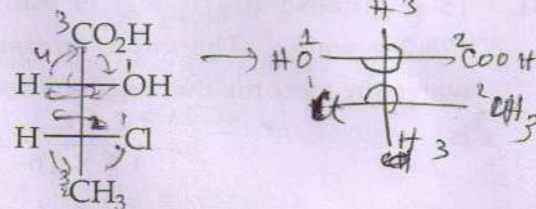 3 CO₂H
4
H 2 1 OH
H 2 1 Cl
3 CH₃
→
H 3
HO 1 2 COOH
1 Cl 2 CH₃
H 3